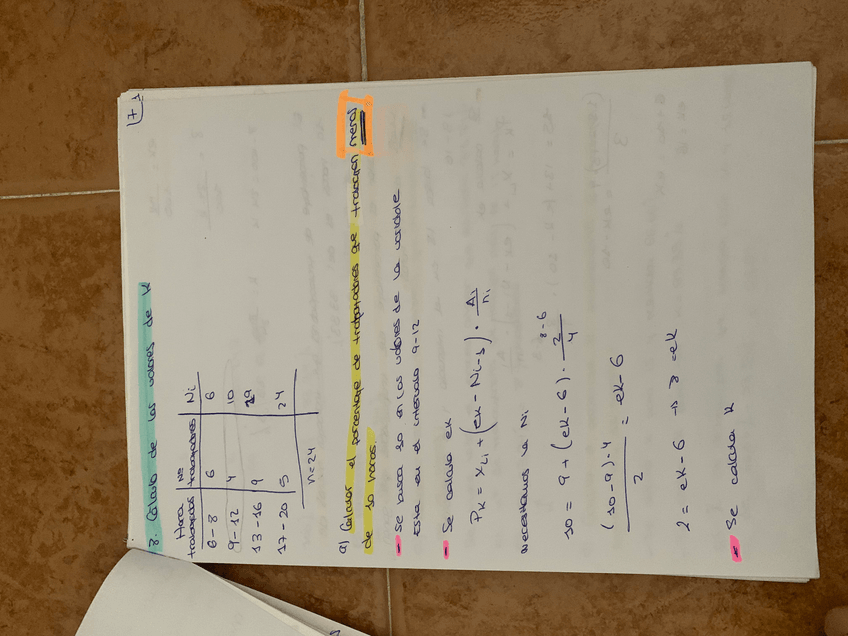 7.1
8. Cálculo de los valores de K
Hora Nº
trabajadas trabajadores Ni
6-8 6 6
9-12 4 10
13-16 9 19
17-20 5 24
n=24
a) Calcular el porcentaje de trabajadores que trabajan menos
de 10 horas
- Se busca 10 en los valores de la variable
Esta en el intervalo 9-12
- Se calcula ek
Pk = xLi + (ek - Ni-1) · Ai/ni
necesitamos la Ni
8-6
10 = 9 + (ek-6) · 2/4
(10-9)·4/2 = ek-6
2 = ek-6 → 8 = ek
- Se calcula K